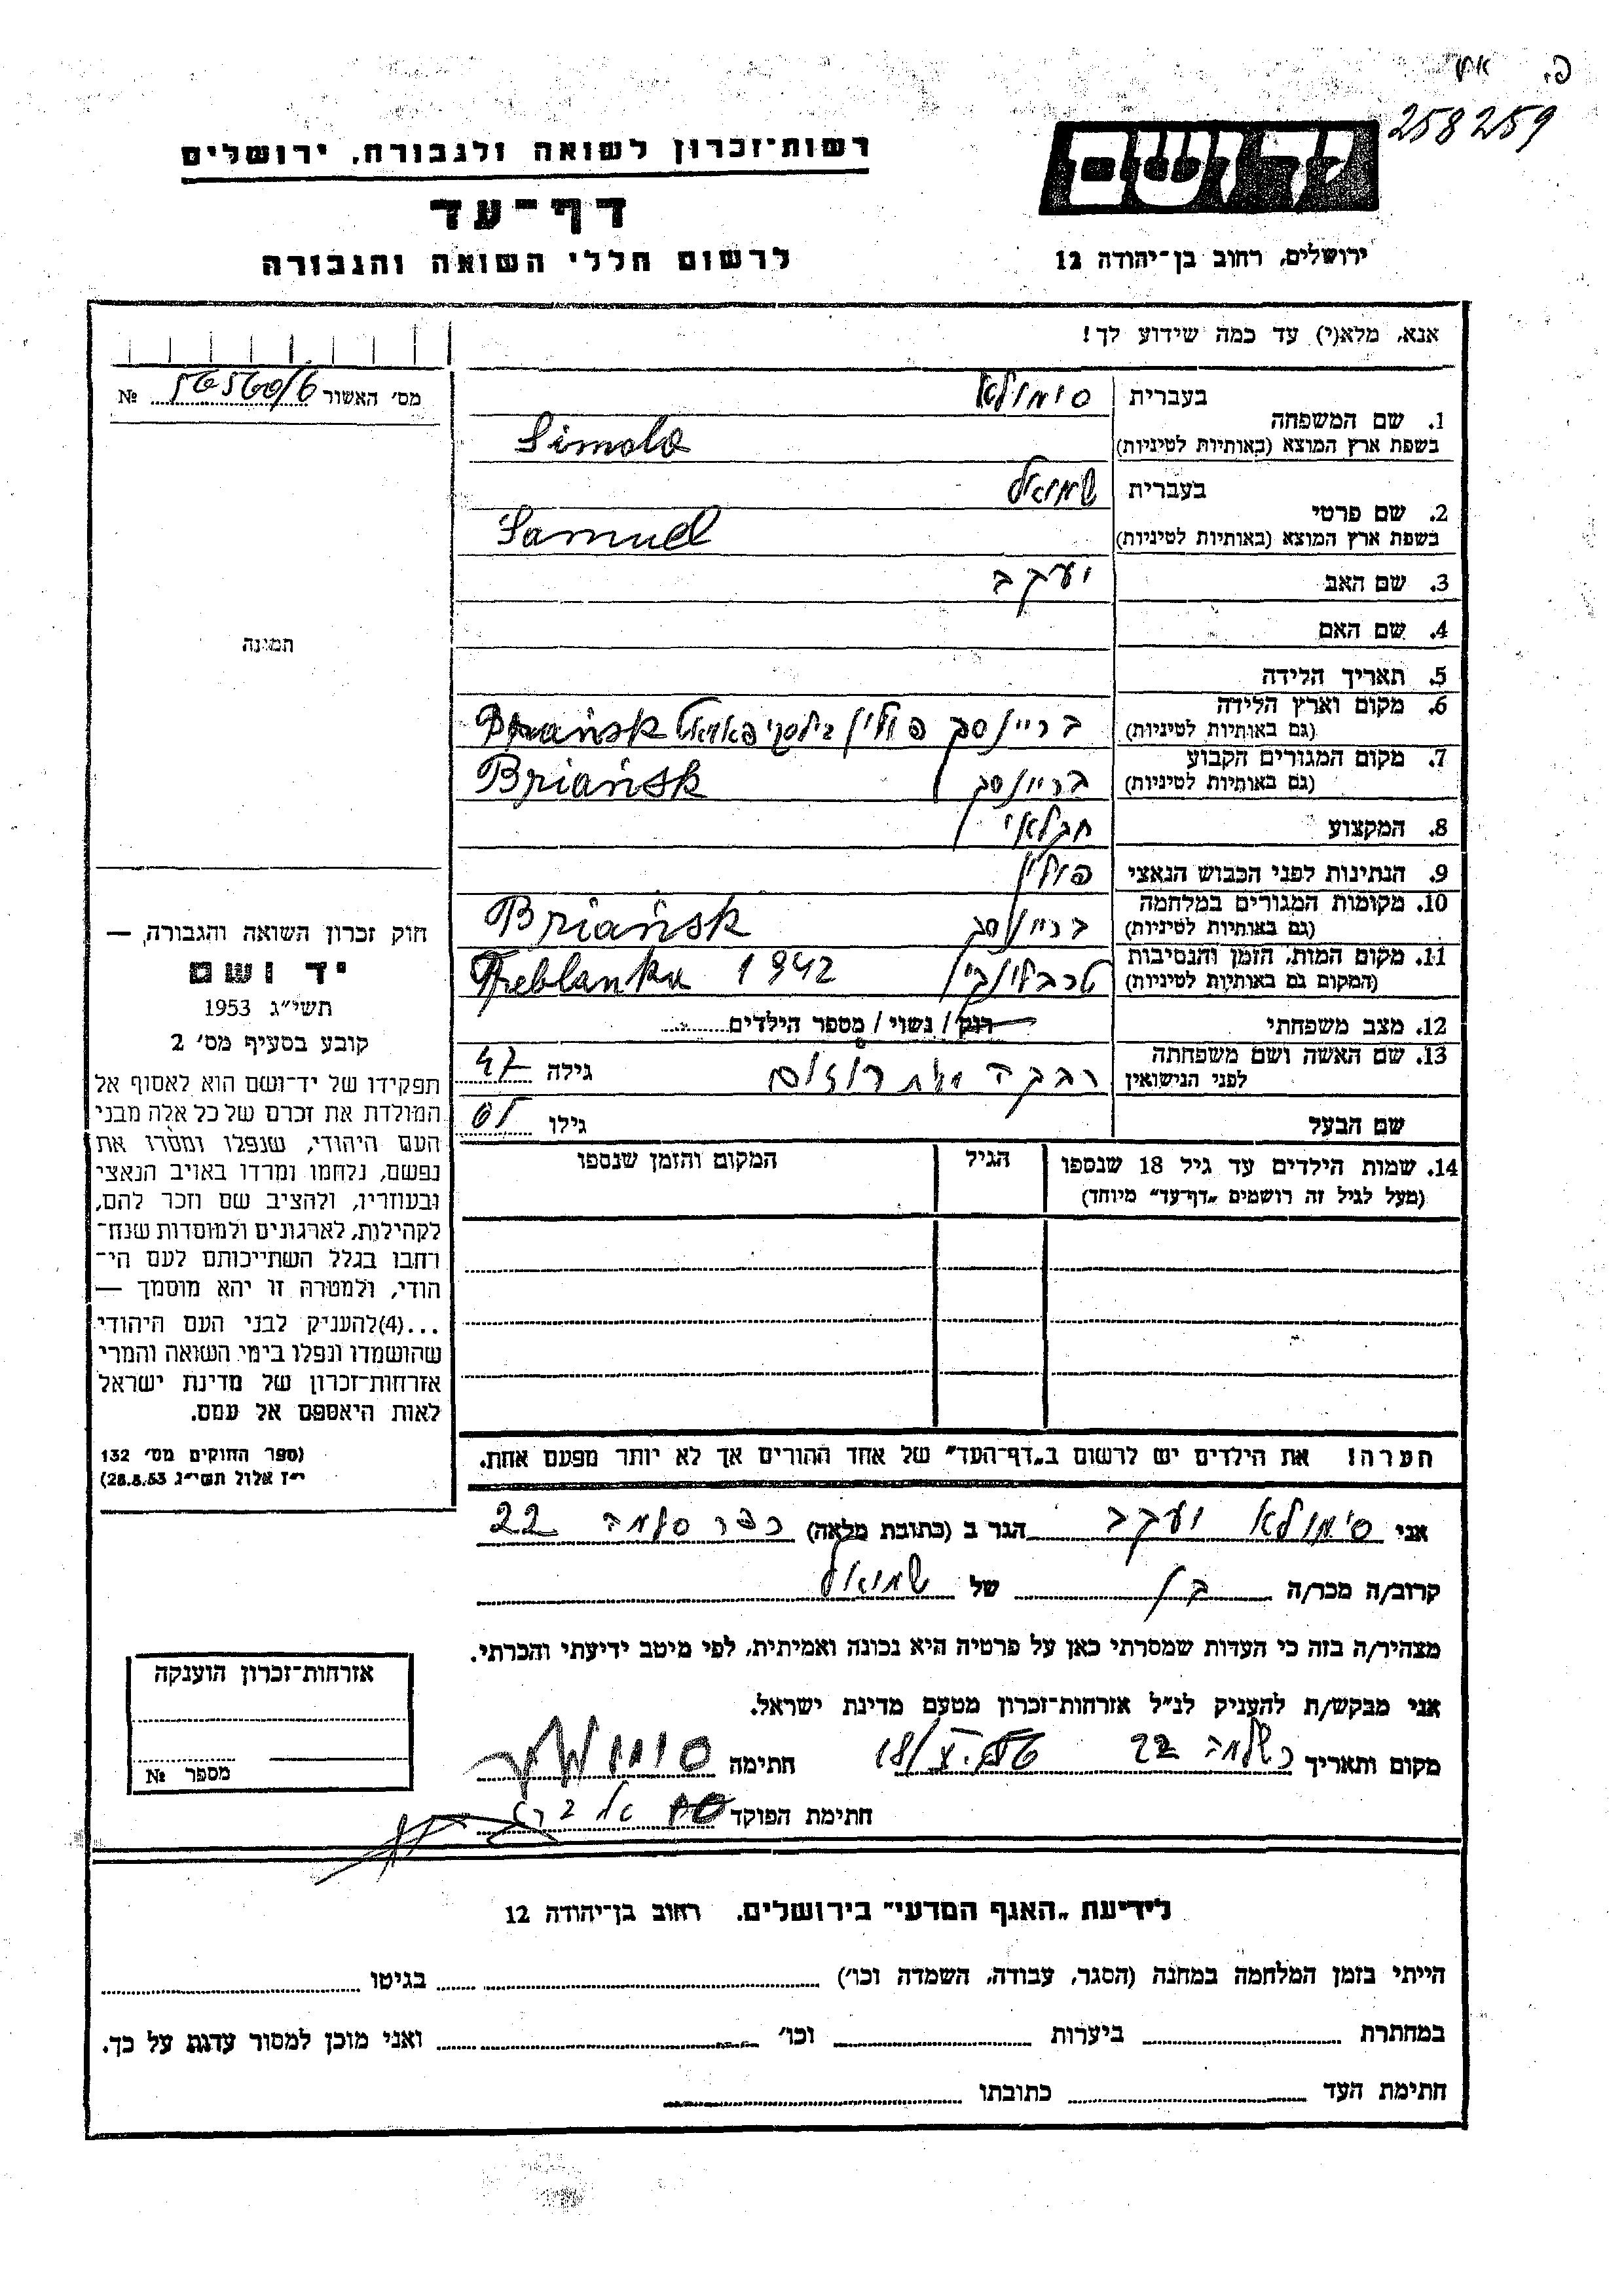 258259
רשות־זכרון לשואה ולגבורה, ירושלים
דף־עד
לרשום חללי השואה והגבורה
יד ושם
ירושלים, רחוב בן־יהודה 12
אנא, מלא(י) עד כמה שידוע לך!
מס׳ האשור №
1. שם המשפחה
בעברית סימולא
בשפת ארץ המוצא (באותיות לטיניות) Simola
2. שם פרטי
בעברית שמואל
בשפת ארץ המוצא (באותיות לטיניות) Samuel
3. שם האב יעקב
4. שם האם
5. תאריך הלידה
6. מקום וארץ הלידה
(גם באותיות לטיניות) בריינסק פולין Briańsk
7. מקום המגורים הקבוע
(גם באותיות לטיניות) בריינסק Briańsk
8. המקצוע חקלאי
9. הנתינות לפני הכבוש הנאצי פולין
10. מקומות המגורים במלחמה
(גם באותיות לטיניות) בריינסק Briańsk
11. מקום המות, הזמן והנסיבות
(המקום גם באותיות לטיניות) טרבלינקי Treblanka 1942
12. מצב משפחתי רוק / נשוי / מספר הילדים
13. שם האשה ושם משפחתה
לפני הנישואין רבקה גילה 47
שם הבעל גילו
14. שמות הילדים עד גיל 18 שנספו
(מעל לגיל זה רושמים „דף־עד״ מיוחד)
הגיל
המקום והזמן שנספו
הערה! את הילדים יש לרשום ב„דף־העד״ של אחד ההורים אך לא יותר מפעם אחת.
תמונה
חוק זכרון השואה והגבורה, —
יד ושם
תשי״ג 1953
קובע בסעיף מס׳ 2
תפקידו של יד־ושם הוא לאסוף אל
המולדת את זכרם של כל אלה מבני
העם היהודי, שנפלו ומסרו את
נפשם, נלחמו ומרדו באויב הנאצי
ובעוזריו, ולהציב שם וזכר להם,
לקהילות, לארגונים ולמוסדות שנח־
רחבו בגלל השתייכותם לעם הי־
הודי, ולמטרה זו יהא מוסמך —
...(4)להעניק לבני העם היהודי
שהושמדו ונפלו בימי השואה והמרי
אזרחות־זכרון של מדינת ישראל
לאות היאספם אל עמם.
(ספר החוקים מס׳ 132
י״ז אלול תשי״ג 28.8.53)
אני סימולא יעקב הגר ב (כתובת מלאה) כפר סלמה 22
קרוב/ה מכר/ה בן של שמואל
מצהיר/ה בזה כי העדות שמסרתי כאן על פרטיה היא נכונה ואמיתית, לפי מיטב ידיעתי והכרתי.
אני מבקש/ת להעניק לנ״ל אזרחות־זכרון מטעם מדינת ישראל.
מקום ותאריך 22 חתימה
חתימת הפוקד
אזרחות־זכרון הוענקה
מספר №
לידיעת „האגף המדעי״ בירושלים, רחוב בן־יהודה 12
הייתי בזמן המלחמה במחנה (הסגר, עבודה, השמדה וכו׳) בגיטו
במחתרת ביערות וכו׳ ואני מוכן למסור עדות על כך.
חתימת העד כתובתו